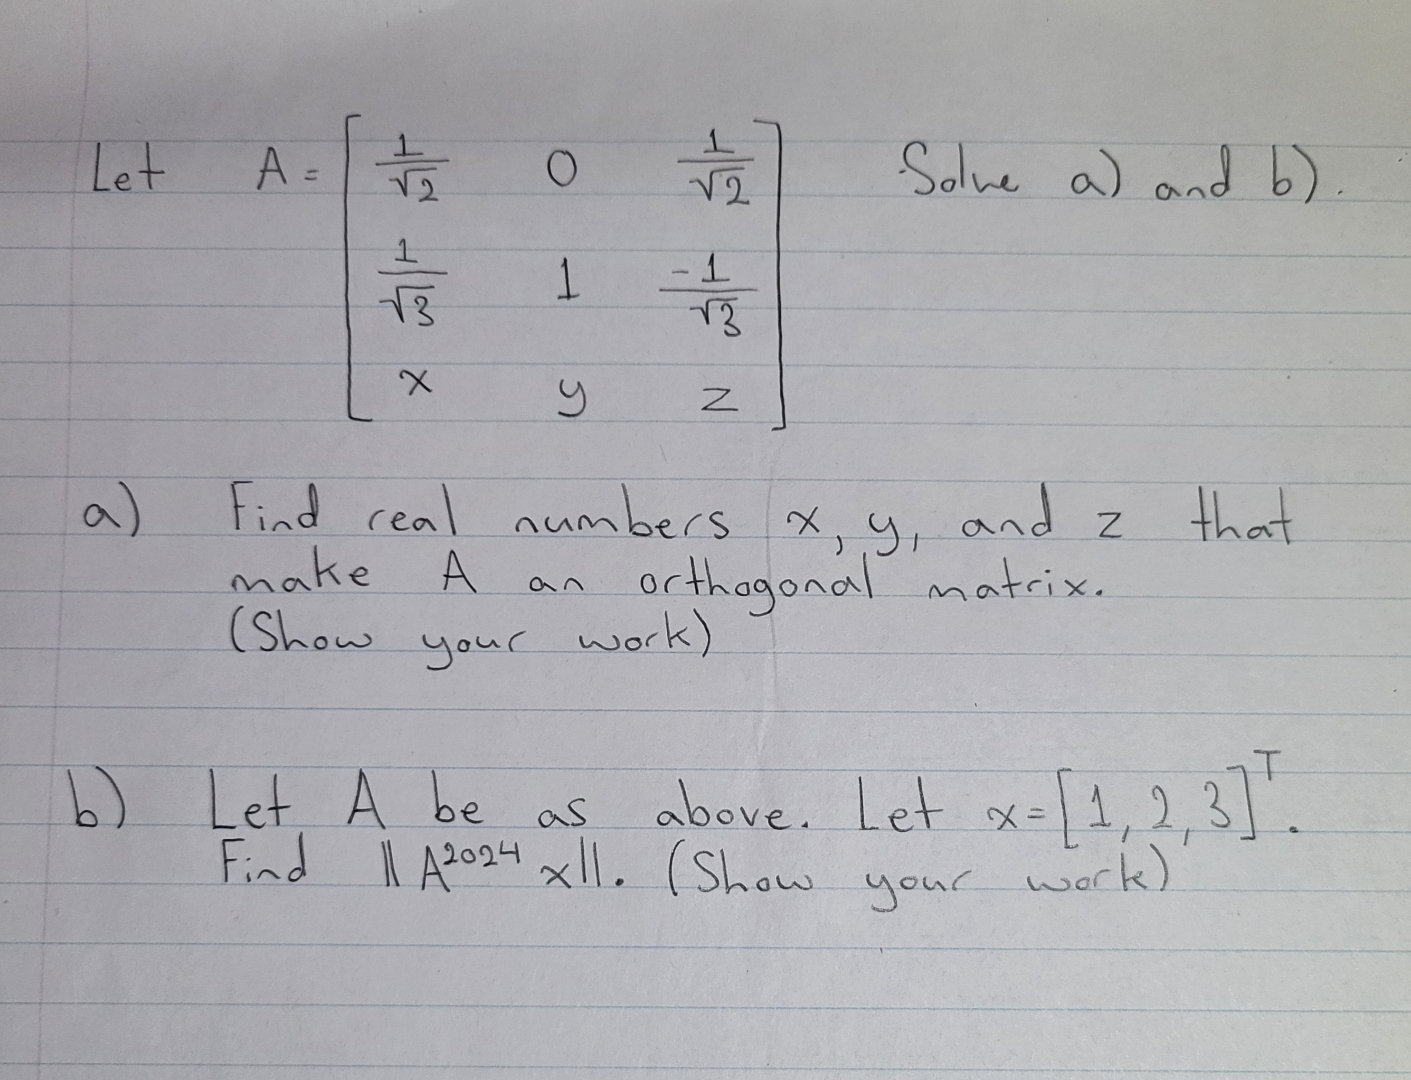 Let A = [ 1/√2 0 1/√2 Solve a) and b).
1/√3 1 -1/√3
x y z ]
a) Find real numbers x, y, and z that
make A an orthogonal matrix.
(Show your work)
b) Let A be as above. Let x=[1, 2, 3]ᵀ.
Find ||A²⁰²⁴ x||. (Show your work)